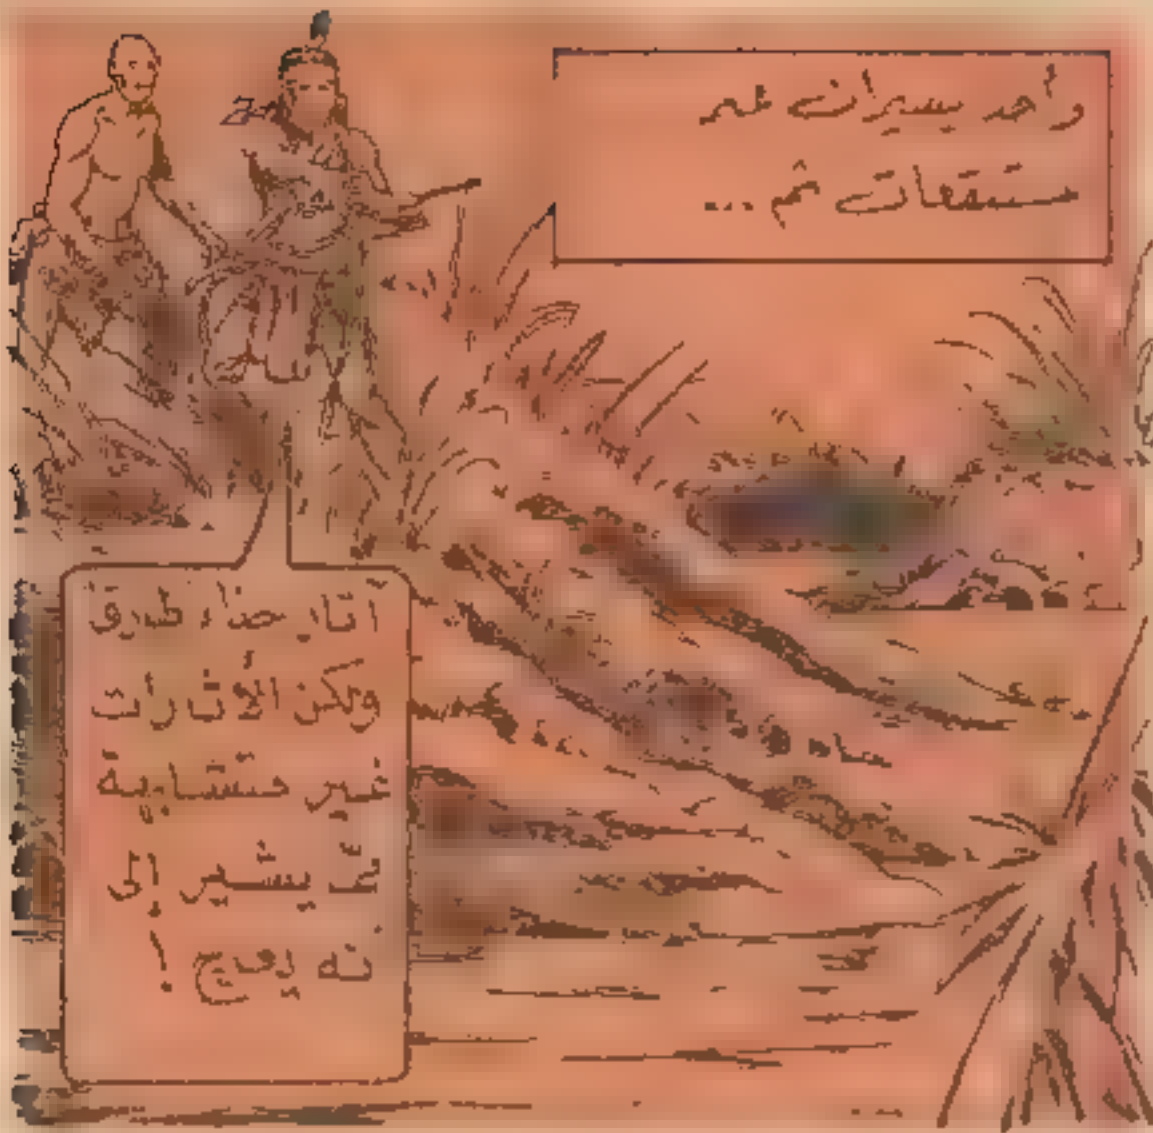 وأحد يسيران عبر
مستنقعات ثم ...
آثار حذاء طرق
ولكن الأثارات
غير متشابهة
يشير إلى
نه يعرج !